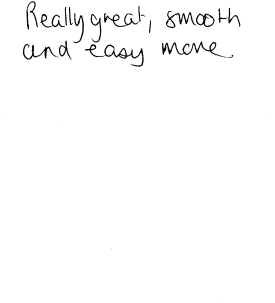 Really great, smooth
and easy move